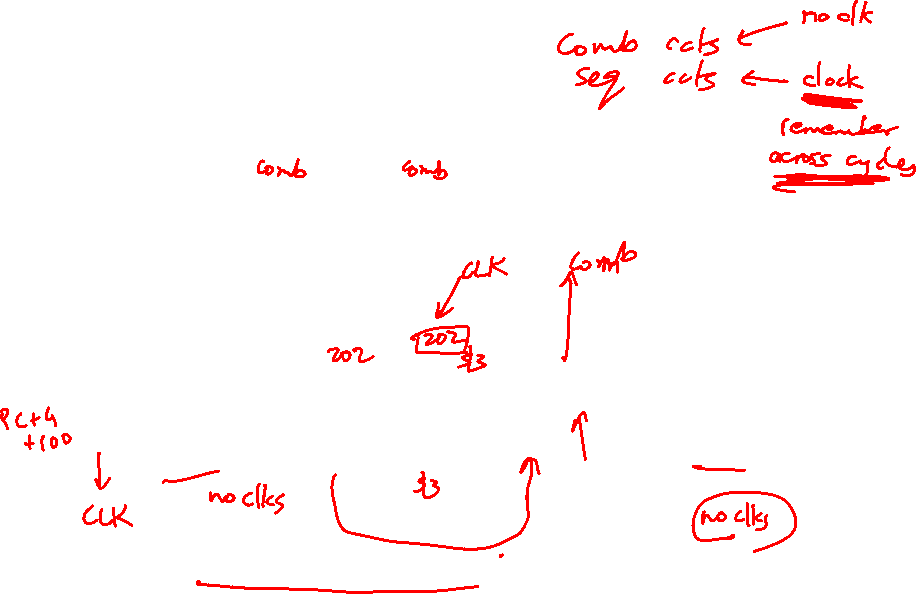 no clk
Comb ccts
seq ccts
clock
remember
across cycles
comb comb
CLK
Comb
202
202
$3
PC+4
+100
CLK
no clks
$3
no clks